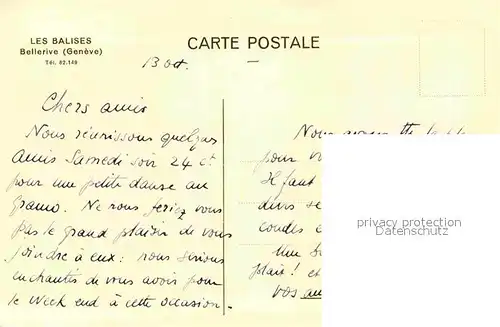 LES BALISES
Bellerive (Genève)
Tél. 82.148
CARTE POSTALE
13 oct.
Chers amis
Nous réunissons quelques
amis Samedi soir 24 ct
pour une petite danse au
gramo. Ne nous feriez vous
pas le grand plaisir de vous
joindre à eux : nous serions
enchantés de vous avoir pour
le week end à cette occasion.
Nous avons
pour
Il faut
coudes
plait! et
vos
privacy protection